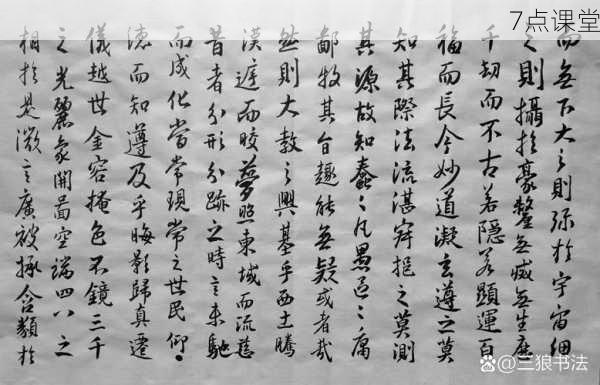 7点课堂
而無下大之則弥於宇宙細
之則攝於豪釐無滅無生歷
千劫而不古若隱若顯運百
福而長今妙道凝玄遵之莫
知其際法流湛寂挹之莫測
其源故知蠢々凡愚區々庸
鄙投其旨趣能無疑或者哉
然則大教之興基乎西土騰
漢庭而皎夢照東域而流慈
昔者分形分跡之時言未馳
而成化當常現常之世民仰
德而知遵及乎晦影歸真遷
儀越世金容掩色不鏡三千
之光麗象開啚空端四八之
相於是微言廣被拯含類於
三狼书法